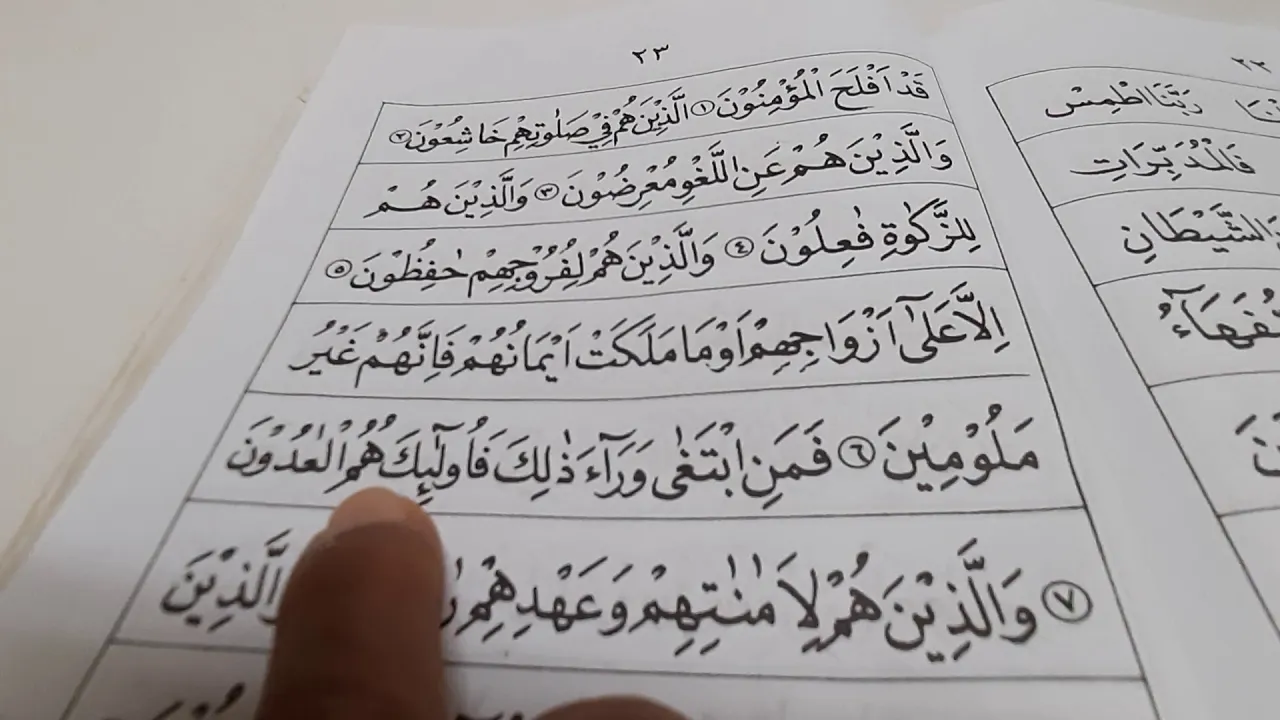 ٢٣
قَدْ اَفْلَحَ الْمُؤْمِنُوْنَ ١ الَّذِيْنَ هُمْ فِيْ صَلٰوتِهِمْ خَاشِعُوْنَ ٢
وَالَّذِيْنَ هُمْ عَنِ اللَّغْوِ مُعْرِضُوْنَ ٣ وَالَّذِيْنَ هُمْ
لِلزَّكٰوةِ فٰعِلُوْنَ ٤ وَالَّذِيْنَ هُمْ لِفُرُوْجِهِمْ حٰفِظُوْنَ ٥
اِلَّا عَلٰٓى اَزْوَاجِهِمْ اَوْ مَا مَلَكَتْ اَيْمَانُهُمْ فَاِنَّهُمْ غَيْرُ
مَلُوْمِيْنَ ٦ فَمَنِ ابْتَغٰى وَرَآءَ ذٰلِكَ فَاُولٰٓئِكَ هُمُ الْعٰدُوْنَ
٧ وَالَّذِيْنَ هُمْ لِاَمٰنٰتِهِمْ وَعَهْدِهِمْ وَالَّذِيْنَ
٢٢
رَبَّنَا اطْمِسْ
فَالْمُدَبِّرَاتِ
الشَّيْطَانِ